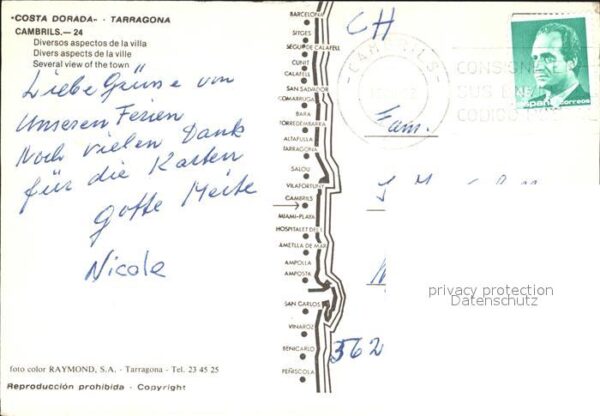 "COSTA DORADA" - TARRAGONA
CAMBRILS.— 24
Diversos aspectos de la villa
Divers aspects de la ville
Several view of the town
Liebe Grüsse von
Unseren Ferien
Noch vielen Dank
für die Karten
Nicole
foto color RAYMOND, S.A. - Tarragona - Tel. 23 45 25
Reproducción prohibida - Copyright
BARCELONA
SITGES
SEGUR DE CALAFELL
CUNIT
CALAFELL
SAN SALVADOR
COMARRUGA
BARA
TORREDEMBARRA
ALTAFULLA
TARRAGONA
SALOU
VILAFORTUNY
CAMBRILS
MIAMI-PLAYA
HOSPITALET DEL I.
AMETLLA DE MAR
AMPOLLA
AMPOSTA
SAN CARLOS
VINAROZ
BENICARLO
PEÑISCOLA
CH
CAMBRILS
CONSIGNE
SUS
CODIGO
españa correos
Fam.
562
privacy protection
Datenschutz